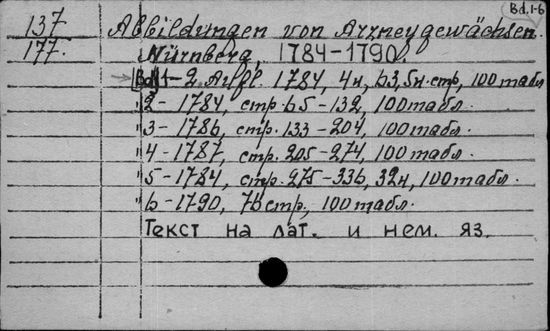 Bd. 1-6
137 Abbildungen von Arzneygewächsen.
177. Nürnberg, 1784-1790.
Bd. 1- 2 Aufl. 1784, 4н, 63, 5н. стр, 100 табл
"2- 1784, стр. 65-132, 100 табл.
"3- 1786, стр. 133-204, 100 табл.
"4- 1787, стр. 205-274, 100 табл.
"5- 1784, стр. 275-336, 32н, 100 табл.
"6- 1790, 76 стр., 100 табл.
Текст на лат. и нем. яз.